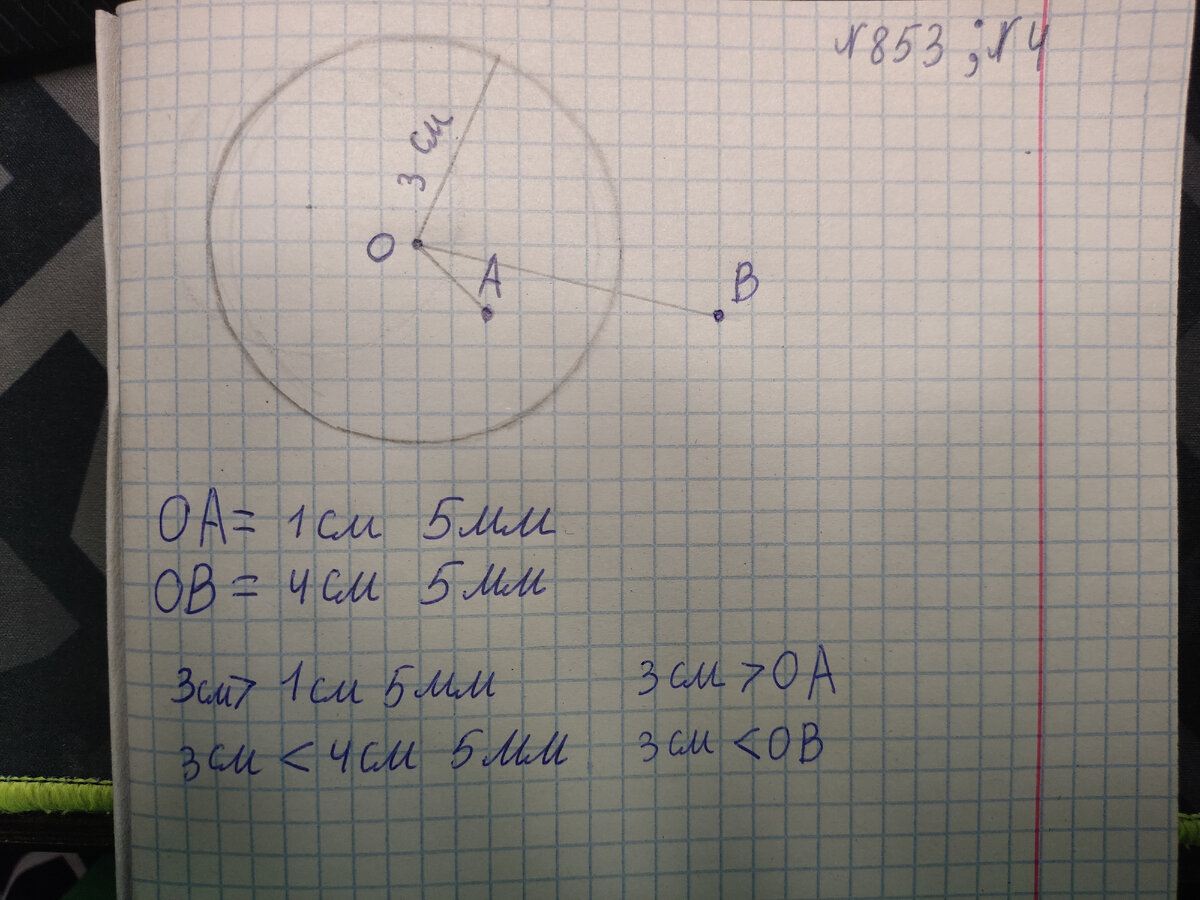 N853; N4
3 см
O
A
B
OA = 1 см 5 мм
OB = 4 см 5 мм
3 см > 1 см 5 мм 3 см > OA
3 см < 4 см 5 мм 3 см < OB